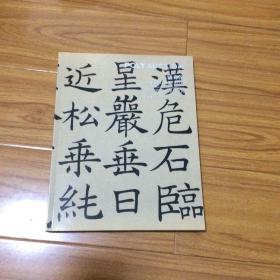 漢危石臨
星巖垂日
近松乘純